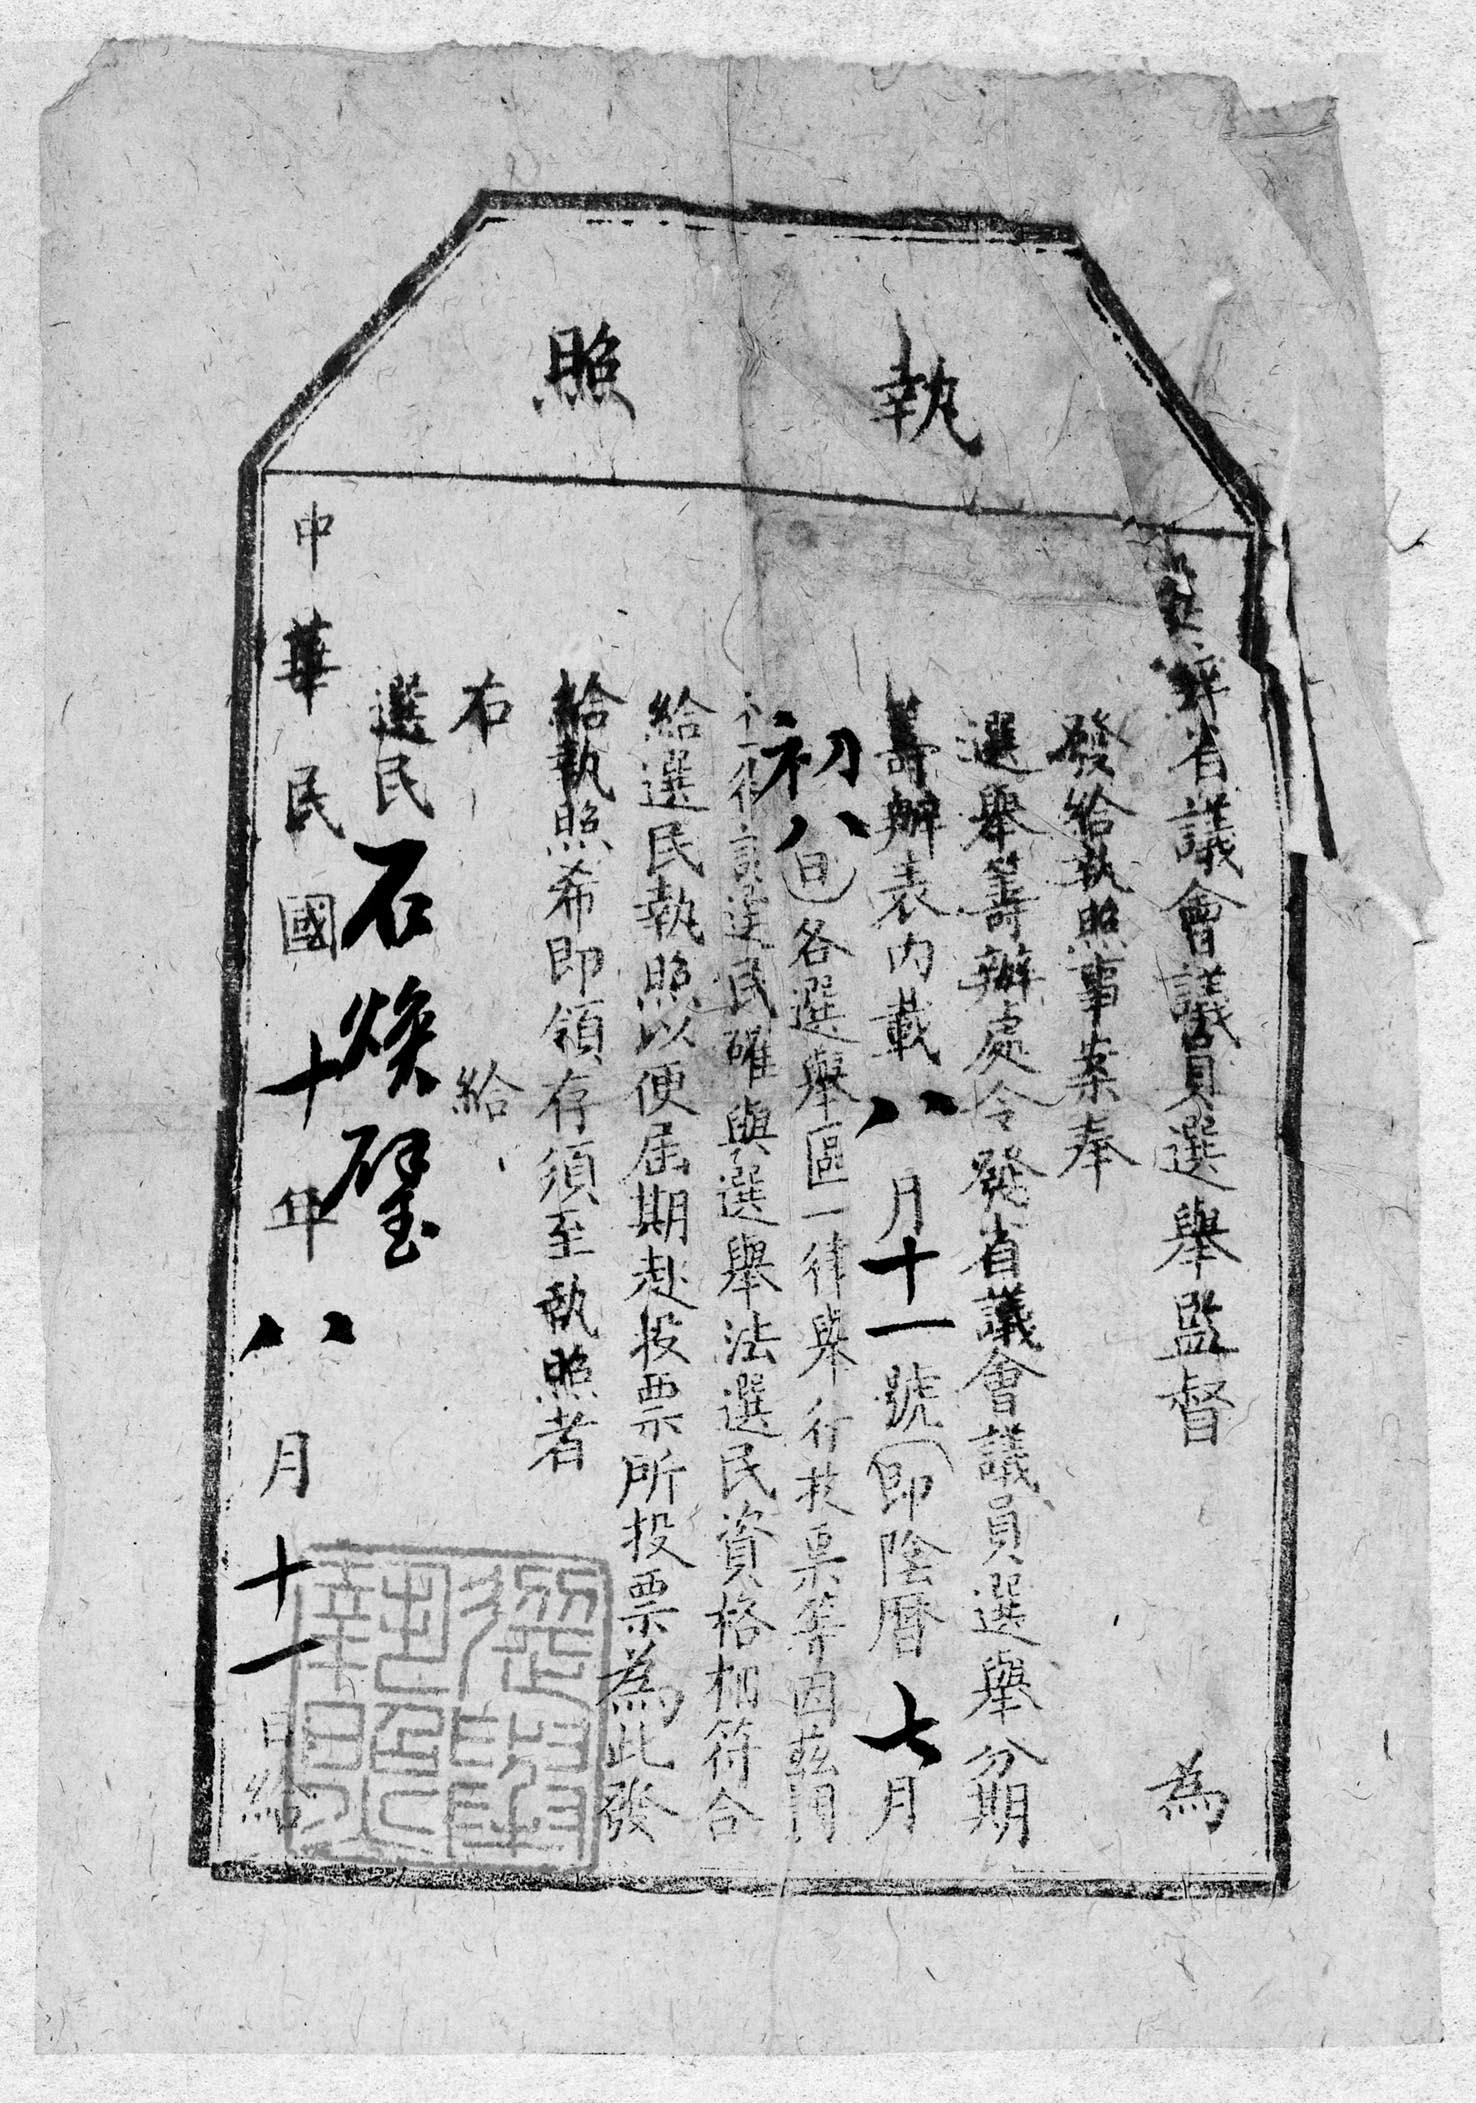 執照
省議會議員選舉監督 為
發給執照事案奉
選舉籌辦處令發省議會議員選舉分期
籌辦表內載八月十一號(即陰曆七月
初八日)各選舉區一律舉行投票等因茲
該選民確與選舉法選民資格相符合
給選民執照以便屆期赴投票所投票為此發
給執照希即領存須至執照者
右 給
選民石煥璧
中華民國十年八月十一日給